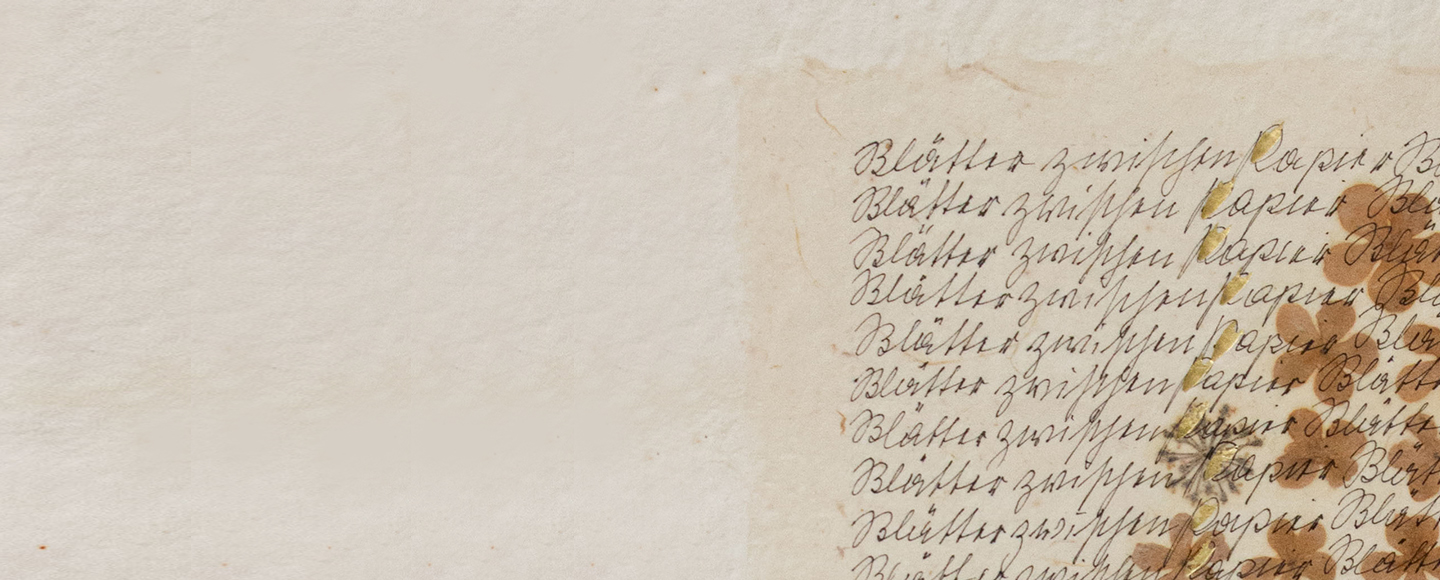 Blätter zwischen Papier Bl
Blätter zwischen Papier Blä
Blätter zwischen Papier Blät
Blätter zwischen Papier Blä
Blätter zwischen Papier Blä
Blätter zwischen Papier Blätt
Blätter zwischen Papier Blätte
Blätter zwischen Papier Blät
Blätter zwischen Papier Blätt
Blätter zwischen Papier Blätt